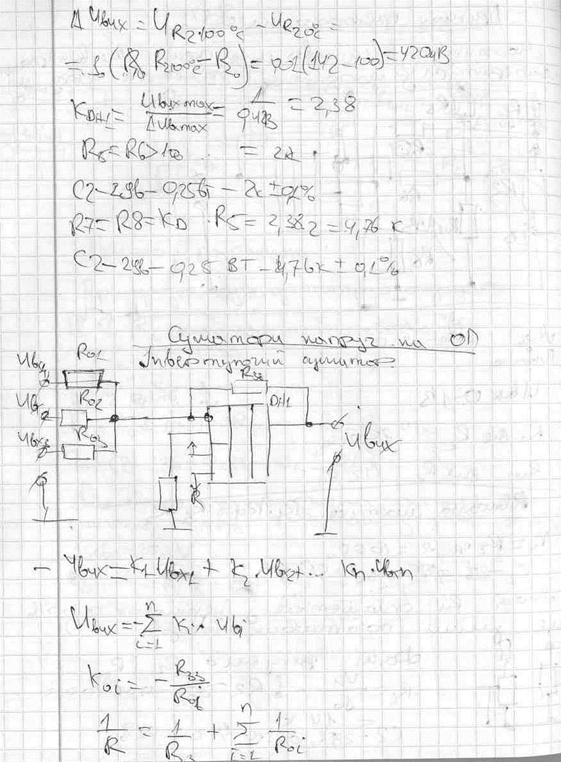 ΔUвих = U R2·100°c − U R20°c =
= I₀(R₀ R100°c − R₀) = 0,01(142−100) = 420мВ
K DH1 = Uвих max / ΔUвх max = 1 / 0,42В = 2,38
R5 = R6 > = 2к
C2−29в−0,25Вт−2к±0,1%
R7 = R8 = KD · R5 = 2,38·2 = 4,76 к
C2−29в−0,25 Вт−4,76к±0,1%
Суматори напруг на ОП
Інвертуючий суматор
Uвх1 R01
R02
Rзз
Uвх3 R03
DH1
Uвих
R
− Uвих = K1·Uвх1 + K2·Uвх2+... Kn·Uвхn
Uвих = −∑ n i=1 Ki · Uвi
K0i = − Rзз / R0i
1/R = 1/Rз + ∑ n i=1 1/R0i